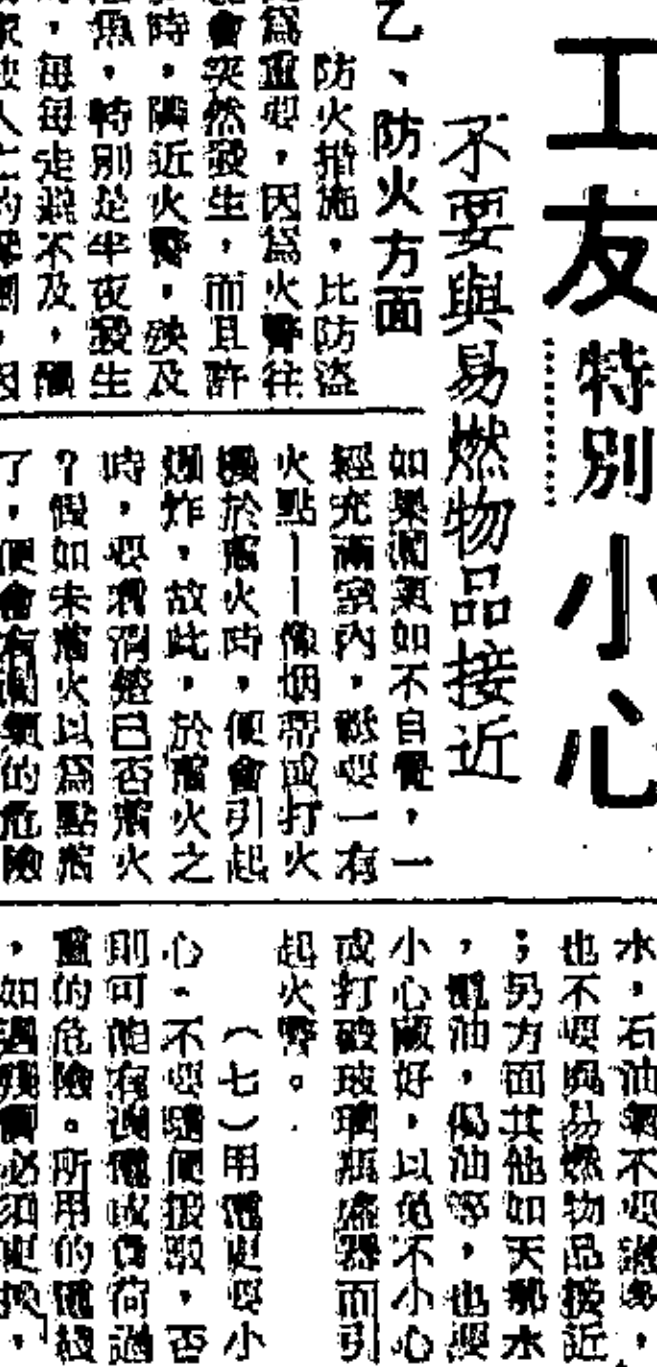 工友特別小心
不要與易燃物品接近
乙、防火方面
防火措施，比防盜
為重要，因為火警往
會突然發生，而且許
時，隣近火警，殃及
魚，特別是半夜發生
，每每走避不及，釀
如果漏氣如不自覺，一
經充滿室內，祇要一有
火點——像烟蒂或打火
機於燃火時，便會引起
爆炸，故此，於燃火之
時，要清楚已否燃火
？假如未燃火以為點燃
了，便會有漏氣的危險
水，石油氣不要
也不要與易燃物品接近
；另方面其他如天那水
，油，偈油等，也要
小心蓋好，以免不小心
或打破玻璃瓶盛器而引
起火警。
（七）用電更要小
心。不要隨便接駁，否
則可能有漏電或負荷過
重的危險。所用的電綫
，如遇殘舊必須更換，